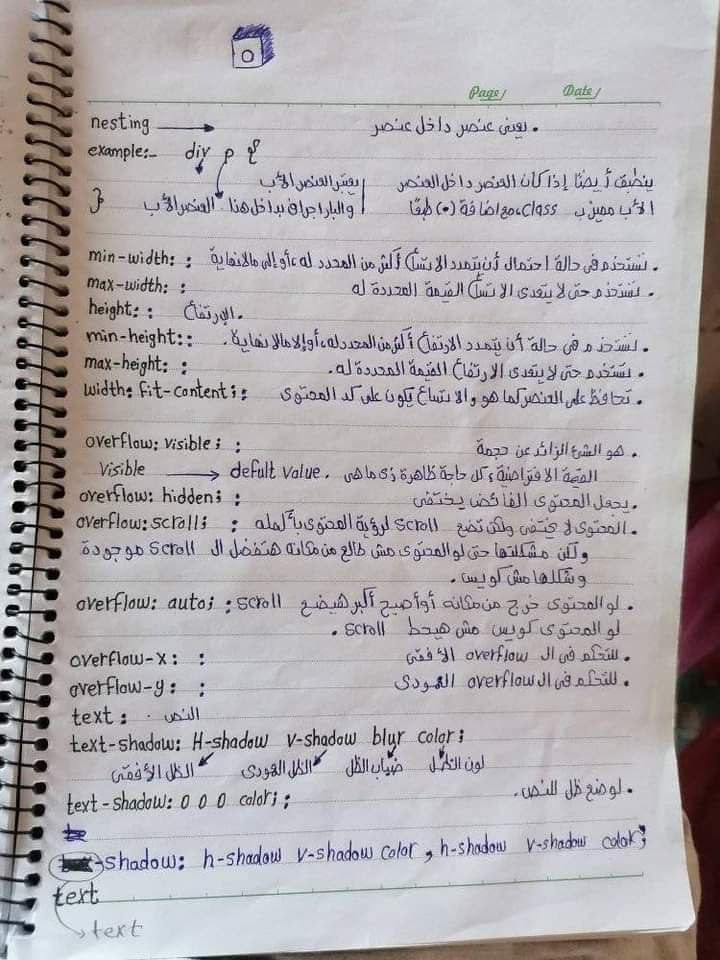 Page/ Date/
nesting → . يعنى عنصر داخل عنصر
example:- div p {
ينطبق أيضًا إذا كان العنصر داخل العنصر | يعتبر العنصر الأب
الأب مميز ب class، مع اضافة (.) طبقًا | والباراجراف بداخل هذا العنصر الأب }
min-width: : . تستخدم فى حالة احتمال أن يتمدد الاتساع أكثر من المحدد له، أو إلى مالانهاية
max-width: : . تستخدم حتى لا يتعدى الاتساع القيمة المحددة له
height: : الإرتفاع.
min-height:: . تستخدم فى حالة أن يتمدد الارتفاع أكثر من المحدد له، أو إلا مالانهاية.
max-height: : . تستخدم حتى لا يتعدى الارتفاع القيمة المحددة له.
width: fit-content; : . تحافظ على العنصر كما هو والاتساع يكون على كد المحتوى
overflow: visible; : . هو الشئ الزائد عن حجمة
visible → defult value. القيمة الافتراضية، كل حاجة ظاهرة زى ماهى
overflow: hidden; : . يجعل المحتوى الفائض يختفى
overflow: scroll; : . المحتوى لا يختفى ولكن تضع scroll لرؤية المحتوى بأكمله
ولكن مشكلتها حتى لو المحتوى مش طالع من مكانه هتفضل ال scroll موجودة
وشكلها مش كويس.
overflow: auto; : . لو المحتوى خرج من مكانه أو أصبح أكبر هيضع scroll
لو المحتوى كويس مش هيحط scroll .
overflow-x: : . للتحكم فى ال overflow الأفقى
overflow-y: : . للتحكم فى ال overflow العمودى
text : النص .
text-shadow: H-shadow v-shadow blur color;
الظل الأفقى الظل العمودى ضباب الظل لون الظل
text-shadow: 0 0 0 color; : . لوضع ظل للنص.
te
-shadow: h-shadow v-shadow color, h-shadow v-shadow color;
text
text